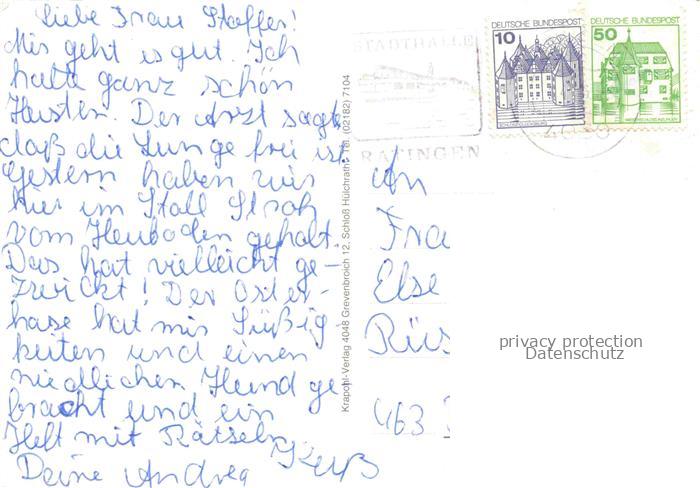 Liebe Frau Stoffer!
Mir geht es gut. Ich
hatte ganz schön
Husten. Der Arzt sagt
daß die Lunge frei ist.
Gestern haben wir
hier im Stall Stroh
vom Heuboden geholt.
Das hat vielleicht ge-
zwickt! Der Oster-
hase hat mir Süßig-
keiten und einen
niedlichen Hund ge-
bracht und ein
Heft mit Rätseln
Kuß
Deine Andrea
Krapohl-Verlag 4048 Grevenbroich 12, Schloß Hülchrath, Tel. (02182) 7104
STADTHALLE
RATINGEN
DEUTSCHE BUNDESPOST
10
DEUTSCHE BUNDESPOST
50
An
Fra
Else
Rüs
463
privacy protection
Datenschutz